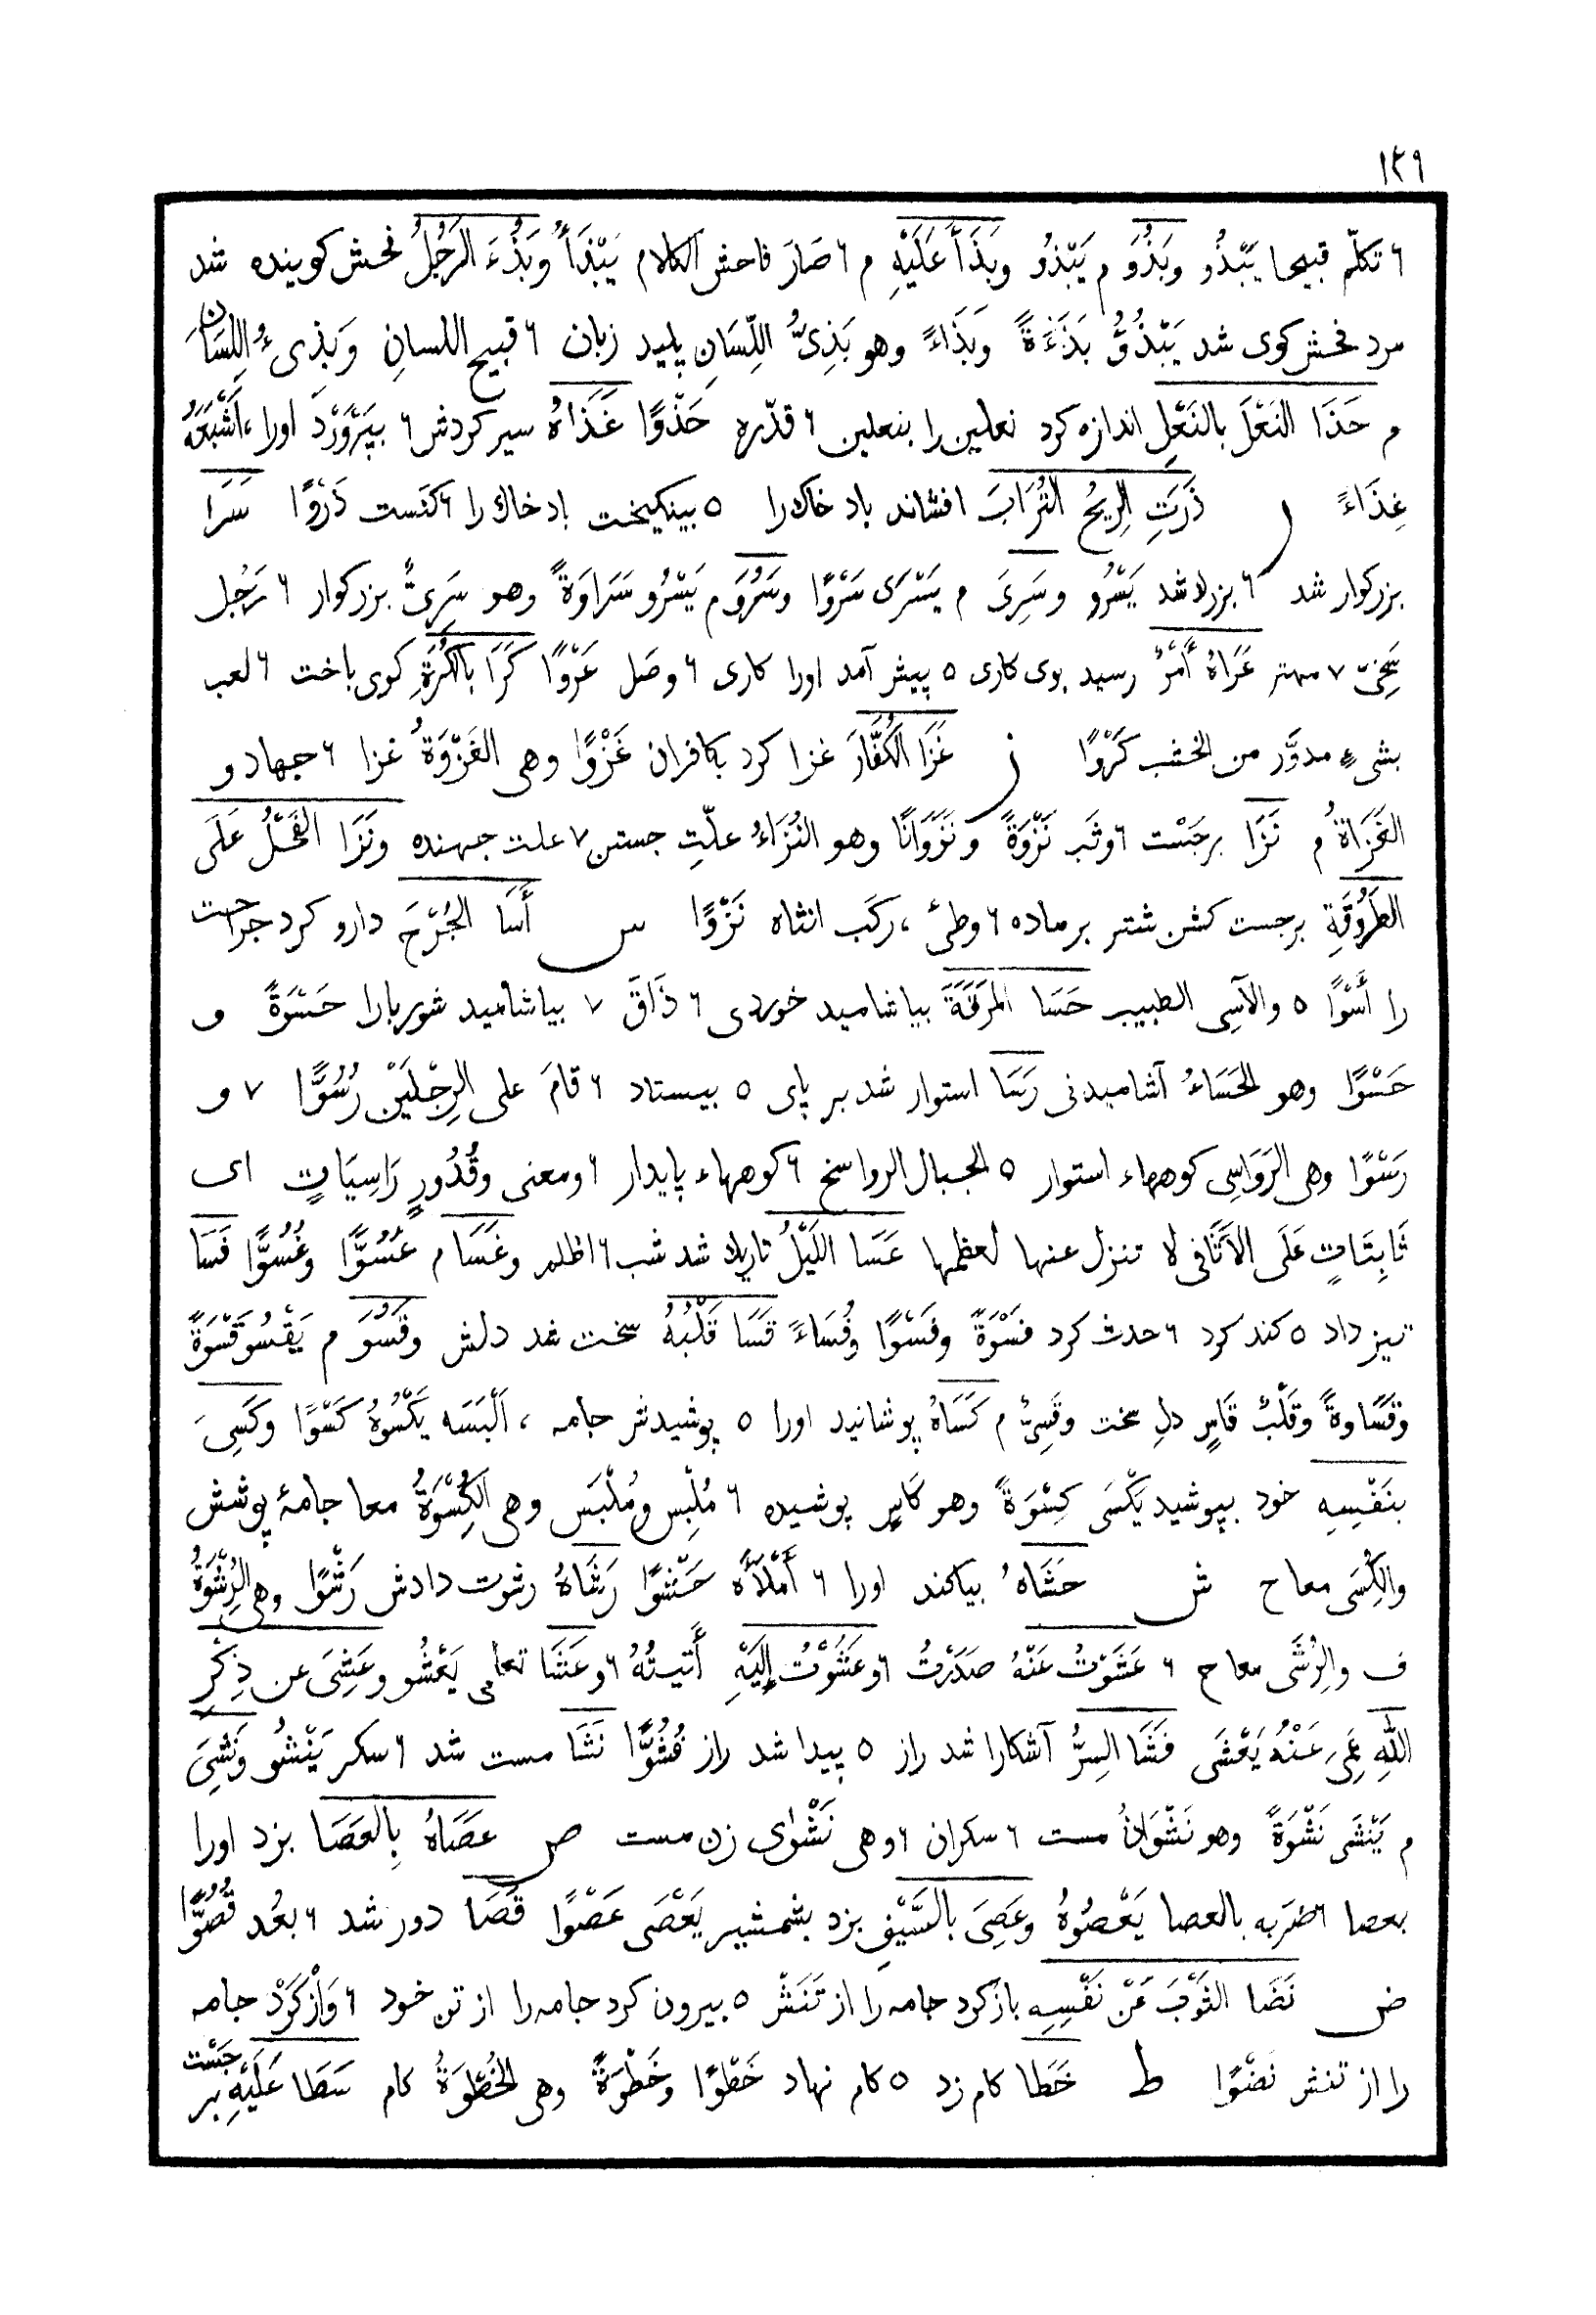 ١٢٩
٦ تكلّم قبيحا يَبْذُو وبَذُوَ م يَبْذُو وبَذَأَ عَلَيْهِ م ٦ صَارَ فاحش الكلام يَبْذَأُ وبَذُءَ الرَجُلُ فحش كوينده شد
مرد فحش كوى شد يَبْذُؤُ بَذَءَةً وَبَذَاءً وهو بَذِىُّ اللِّسَانِ پليد زبان ٦ قبيح اللسانِ وَبذىءُ اللِسَانِ
م حَذَا النَعْلَ بالنَعْلِ اندازه كرد نعلين را بنعلين ٦ قدّره حَذْوًا غَذَاهُ سير كردش ٦ بپَرْوَرْدَ اورا ، أَشْبَعَهُ
غِذَاءً ر ذَرَتِ الرِيحُ التُرَابَ افشاند باد خاك را ٥ بينكيخت باد خاك را ٦ كنست ذَرْوًا سَرَا
بزركوار شد ٦ بزرك شد يَسْرُو وسَرِىَ م يَسْرَى سَرْوًا وسَرُوَ م يَسْرُو سَرَاوَةً وهو سَرِىٌّ بزركوار ٦ رَجُل
سَخِىّ ٧ مهتر عَرَاهُ أَمْرٌ رسيد بوى كارى ٥ پيش آمد اورا كارى ٦ وصَل عَرْوًا كَرَا بالكُرَةِ كوى باخت ٦ لعب
بشىءٍ مدوَّر من الخشب كَرْوًا ز غَزَا الكُفَّارَ غزا كرد بكافران غَزْوًا وهى الغَزْوَةُ غزا ٦ جهاد و
الغَزَاةُ م نَزَا برجَسْت ٦ وثَب نَزْوَةً ونَزَوَانًا وهو النُزَاءُ علّتِ جستن ٧ علت جهنده ونَزَا الفَحْلُ عَلَى
الطَرُوقَةِ برجست كشن شتر بر ماده ٦ وطئ ، ركَب انثاه نَزْوًا س أَسَا الجُرْحَ دارو كرد جراحت
را أَسْوًا ٥ والآسِى الطبيب حَسَا المَرَقَةَ بياشاميد خوردى ٦ ذَاقَ ٧ بياشاميد شوربا را حَسْوَةً و
حَسْوًا وهو الحَسَاءُ آشاميدنى رَسَا استوار شد بر پاى ٥ بيستاد ٦ قامَ على الرِجْلَيْنِ رُسُوًّا ٧ و
رَسْوًا وهى الرَوَاسِى كوهها استوار ٥ الجبال الرواسخ ٦ كوههاء پايدار ٦ ومعنى وقُدُورٍ رَاسِيَاتٍ اى
ثَابِتَاتٍ عَلَى الأَثَافى لا تنزل عنها لعظمها عَسَا اللَيْلُ تاريك شد شب ٦ اظلم وغَسَا م عُسُوًّا وغُسُوًّا فَسَا
تيز داد ٥ كند كرد ٦ حدث كرد فَسْوَةً وفَسْوًا وفُسَاءً قَسَا قَلْبُهُ سخت شد دلش وقَسُوَ م يَقْسُو قَسْوَةً
وقَسَاوةً وقَلْبٌ قَاسٍ دلِ سخت وقَسِىٌّ م كَسَاهُ پوشانيد اورا ٥ پوشيدش جامه ، اَلْبَسَه يَكْسُوهُ كَسْوًا وكَسِىَ
بنَفْسِهِ خود بپوشيد يَكْسَى كِسْوَةً وهو كَاسٍ پوشيده ٦ مُلْبِس ومُلْبَس وهى الكُِسْوَةُ معا جامهٔ پوشش
والكُِسَى معا ح ش حَشَاهُ بياكند اورا ٦ أَمْلَأَه حَشْوًا رَشَاهُ رشوت دادش رَشْوًا وهى الرُِشْوَةُ
ف والرُِشَى معا ح ٦ عَشَوْتُ عَنْهُ صَدَرْتُ ٦ وعَشَوْتُ إِلَيْهِ أَتَيتُهُ ٦ وعَشَا تعامى يَعْشُو وعَشِىَ عن ذِكْرِ
اللهِ عَمِىَ عَنْهُ يَعْشَى فَشَا السِرُّ آشكارا شد راز ٥ پيدا شد راز فُشُوًّا نَشَا مست شد ٦ سكر يَنْشُو ونَشِىَ
م يَنْشَى نَشْوَةً وهو نَشْوَانُ مست ٦ سكران ٦ وهى نَشْوٰى زن مست ص عَصَاهُ بِالعَصَا بزد اورا
بعصا ٦ ضرَبه بالعصا يَعْصُوهُ وعَصِىَ بالسَّيْفِ بزد بشمشير يَعْصَى عَصْوًا قَصَا دور شد ٦ بعُد قُصُوًّا
ض نَضَا الثَوْبَ عَنْ نَفْسِهِ باز كرد جامه را از تَنَشْ ٥ بيرون كرد جامه را از تن خود ٦ وَازْ كَرَدْ جامه
را از تنش نَضْوًا ط خَطَا كام زد ٥ كام نهاد خَطْوًا وخَطْوَةً وهى الخُطْوَةُ كام سَطَا عَلَيْهِ بر جَسْت